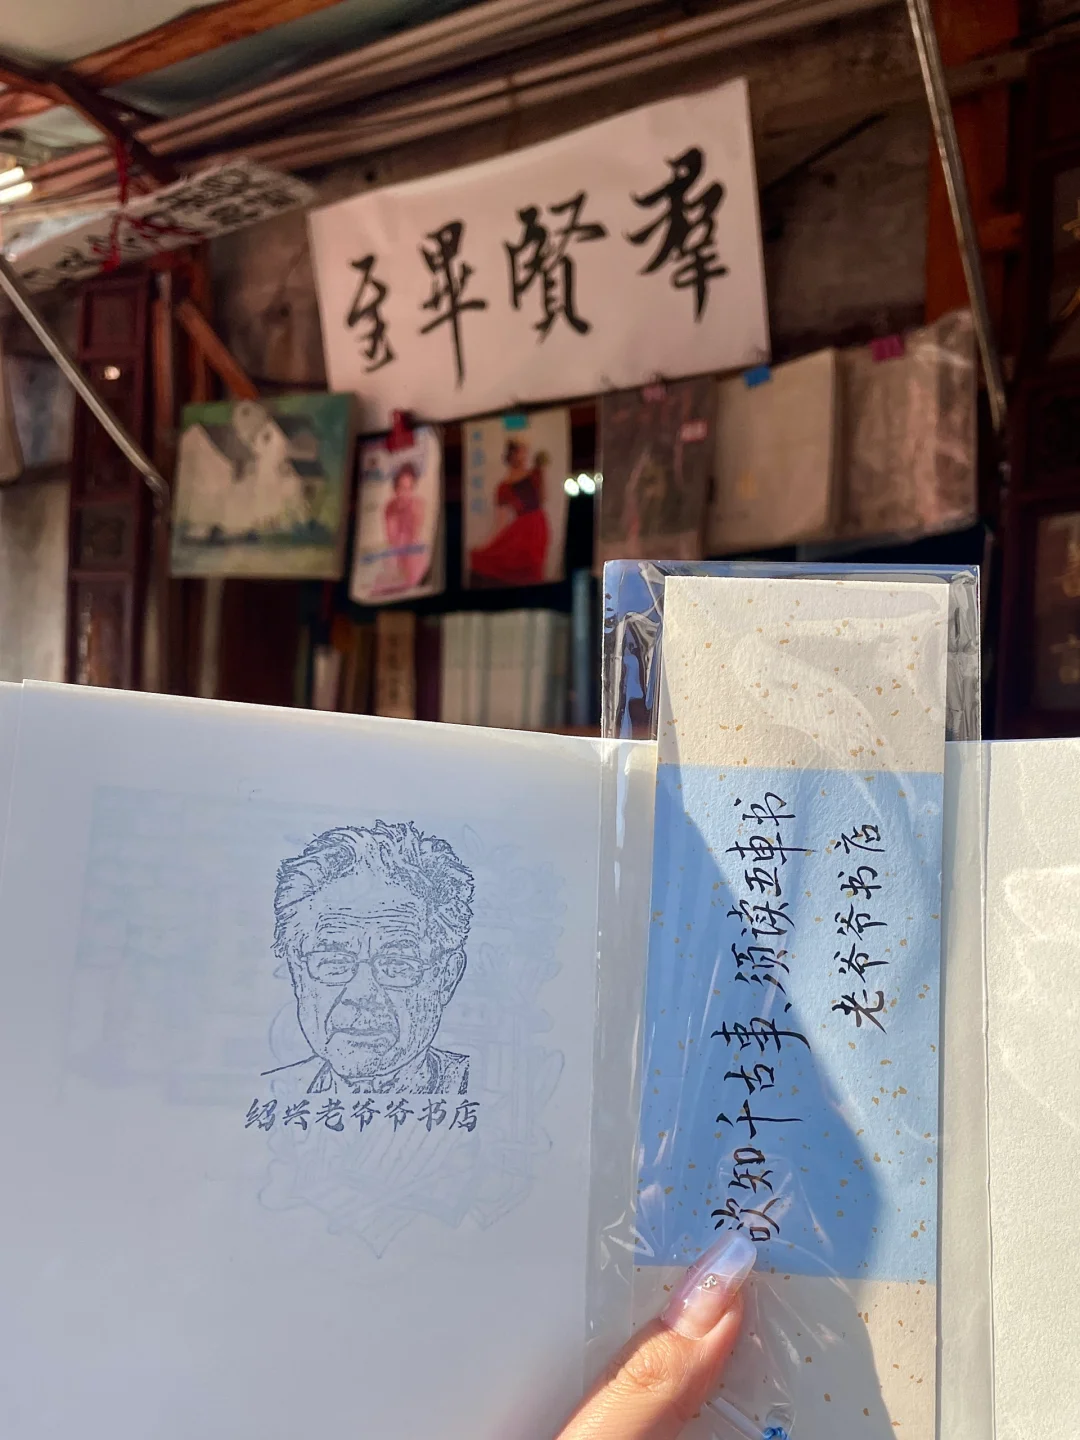 羣賢畢至
绍兴老爷爷书店
欲知千古事、须读五車书
老爷爷书店